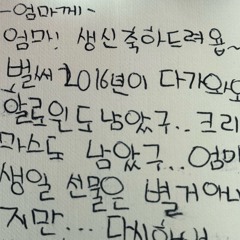 -엄마께-
엄마! 생신축하드려욥~
벌써 2016년이 다가와오
할로윈도 남았구.. 크리
마스도 남았구.. 엄마
생일 선물은 별거아니
지만...